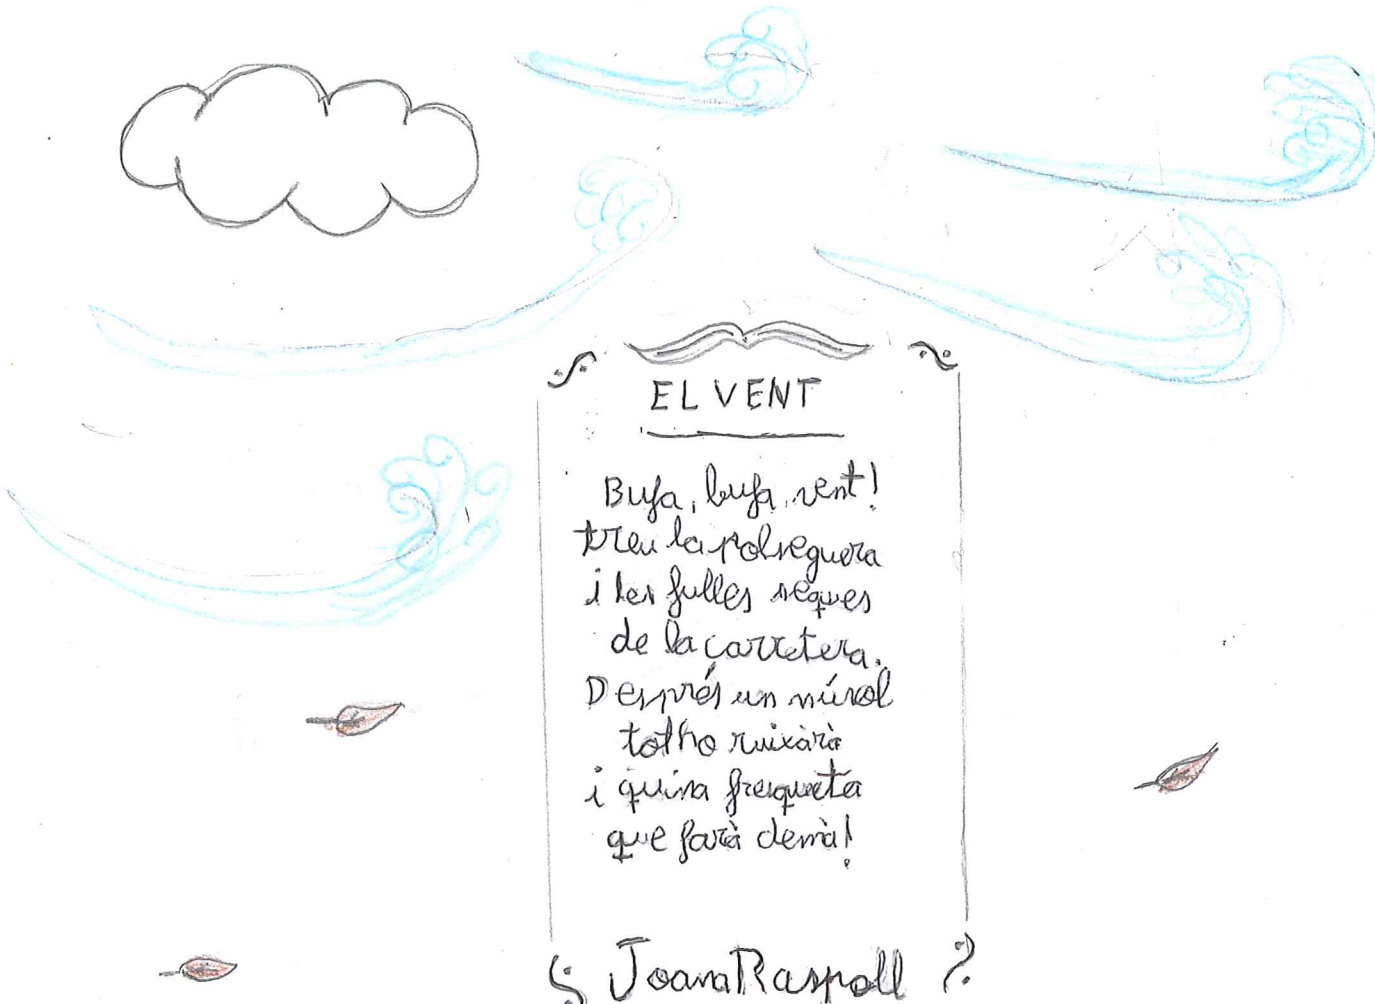 EL VENT
Bufa, bufa, vent!
treu la polseguera
i les fulles seques
de la carretera.
Després un núvol
totho ruixarà
i quina fresqueta
que farà demà!
Joana Raspall